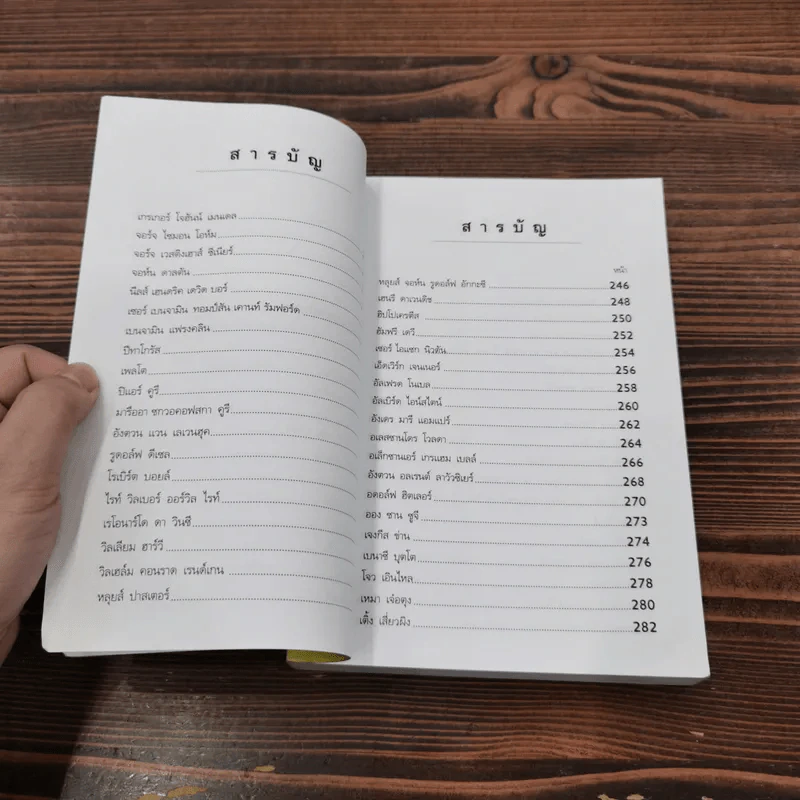 สารบัญ
เกรเกอร์ โจฮันน์ เมนเดล
จอร์จ ไซมอน โอห์ม
จอร์จ เวสติงเฮาส์ ซีเนียร์
จอห์น ดาลตัน
นีลส์ เฮนดริค เดวิด บอร์
เซอร์ เบนจามิน ทอมป์สัน เคานท์ รัมฟอร์ด
เบนจามิน แฟรงคลิน
ปีทาโกรัส
เพลโต
ปิแอร์ คูรี
มารีออา ซกวอดอฟสกา คูรี
อังตวน แวน เลเวนฮุค
รูดอล์ฟ ดีเซล
โรเบิร์ต บอยล์
ไรท์ วิลเบอร์ ออร์วิล ไรท์
เรโอนาร์โด ดา วินซี
วิลเลียม ฮาร์วี
วิลเฮล์ม คอนราด เรนต์เกน
หลุยส์ ปาสเตอร์
สารบัญ
หน้า
หลุยส์ จอห์น รูดอล์ฟ อักกะซี 246
เฮนรี คาเวนดิช 248
ฮิปโปเครตีส 250
ฮัมฟรี เดวี 252
เซอร์ ไอแซก นิวตัน 254
เอ็ดเวิร์ก เจนเนอร์ 256
อัลเฟรด โนเบล 258
อัลเบิร์ต ไอน์สไตน์ 260
อังเดร มารี แอมแปร์ 262
อเลสซานโดร โวลตา 264
อเล็กซานแอร์ เกรแฮม เบลล์ 266
อังตวน อลเรนต์ ลาวัวซิเยร์ 268
อดอล์ฟ ฮิตเลอร์ 270
ออง ซาน ซูจี 273
เจงกีส ข่าน 274
เบนาซี บุตโต 276
โจว เอินไหล 278
เหมา เจ๋อตุง 280
เติ้ง เสี่ยวผิง 282